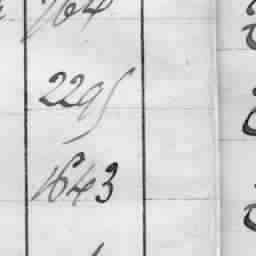 764
2295
1643